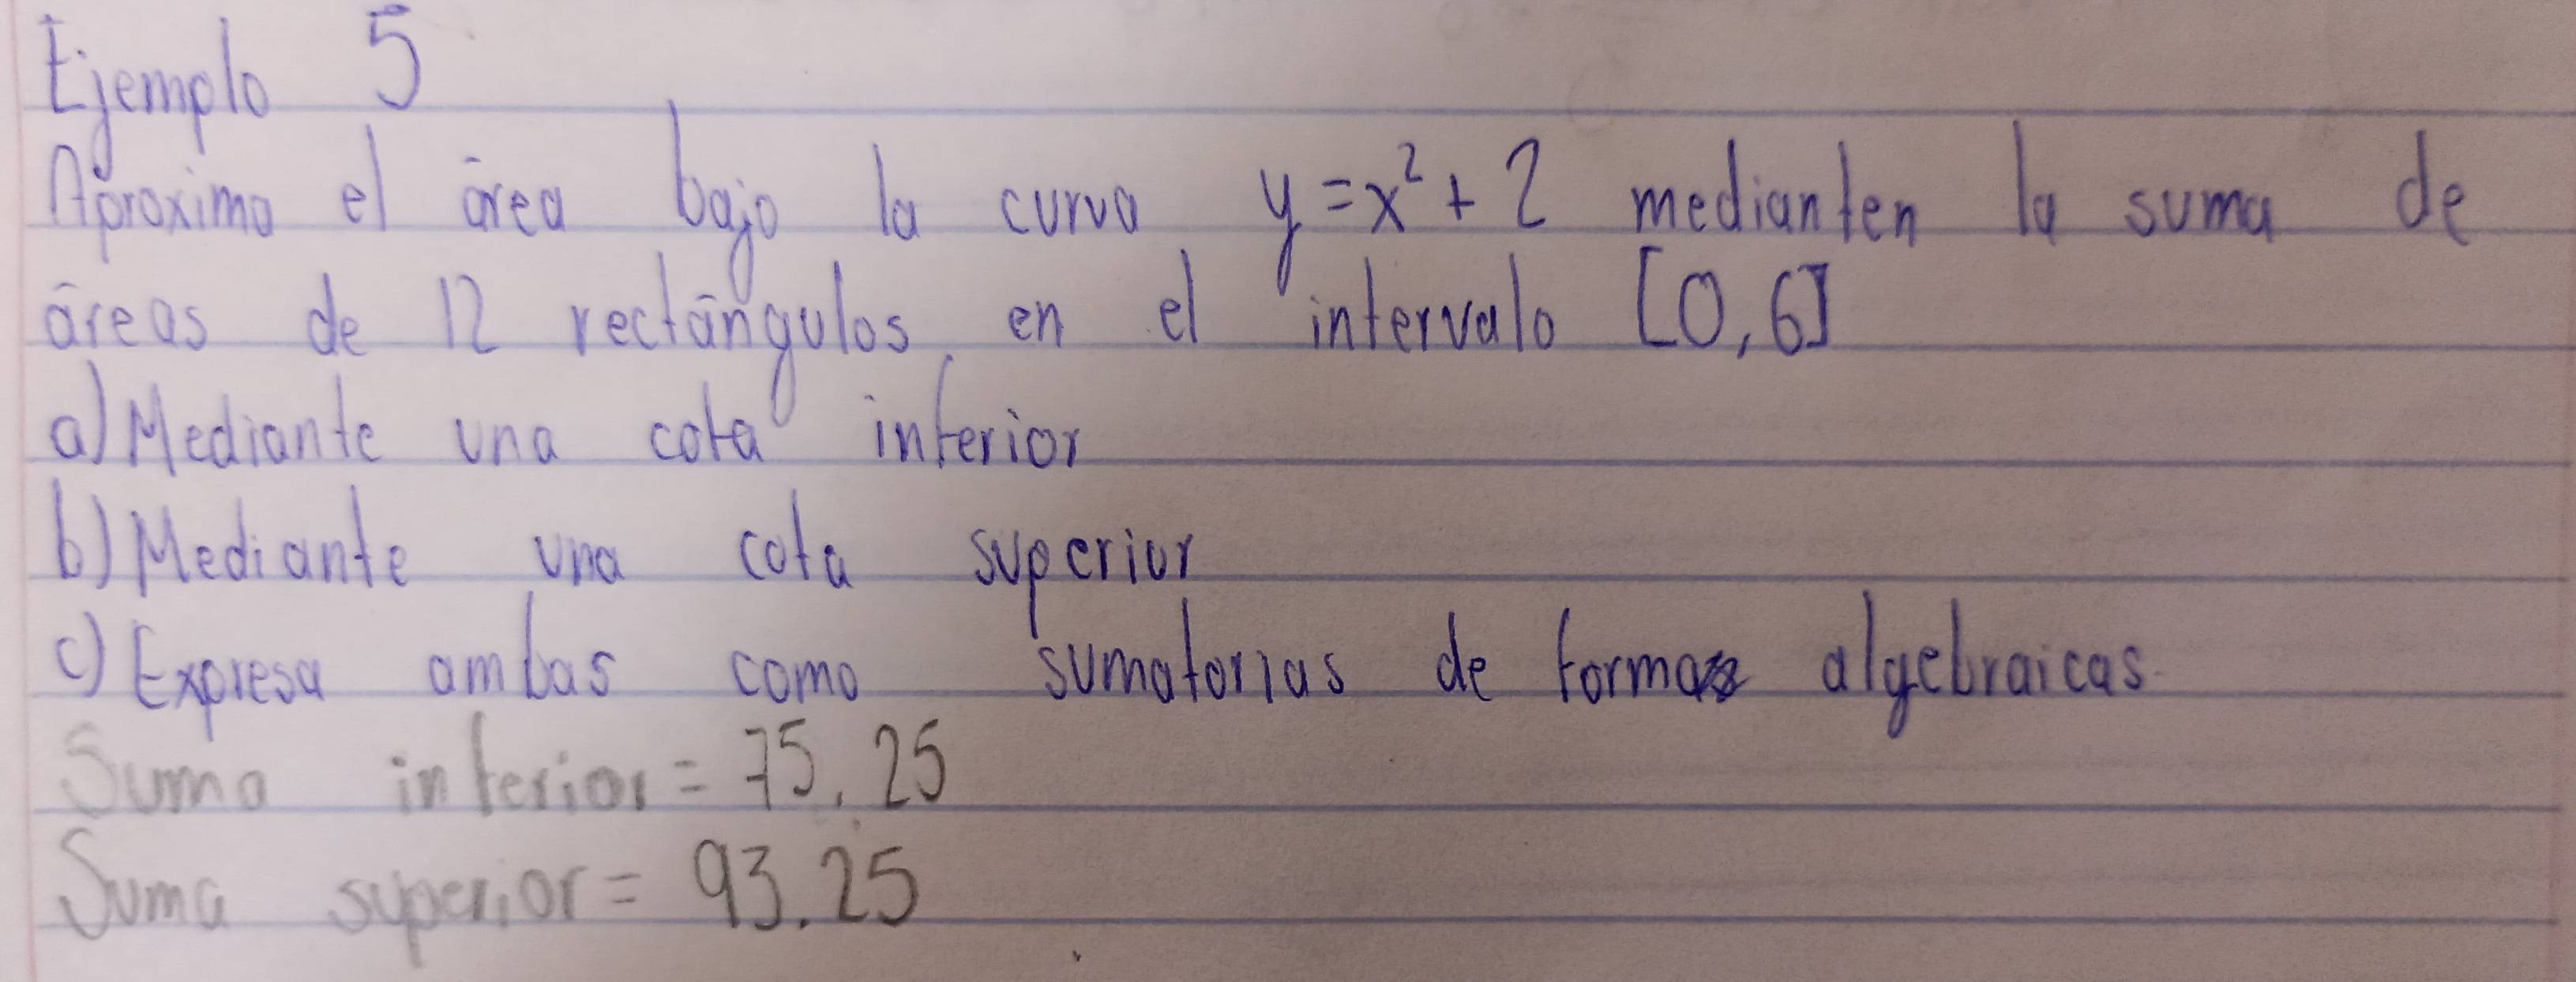 Ejemplo 5
Aproxima el área bajo la curva y = x² + 2 medianten la suma de
áreas de 12 rectángulos en el intervalo [0,6]
a) Mediante una cota inferior
b) Mediante una cota superior
c) Expresa ambas como sumatorias de forma algebraicas.
Suma inferior = 75.25
Suma superior = 93.25